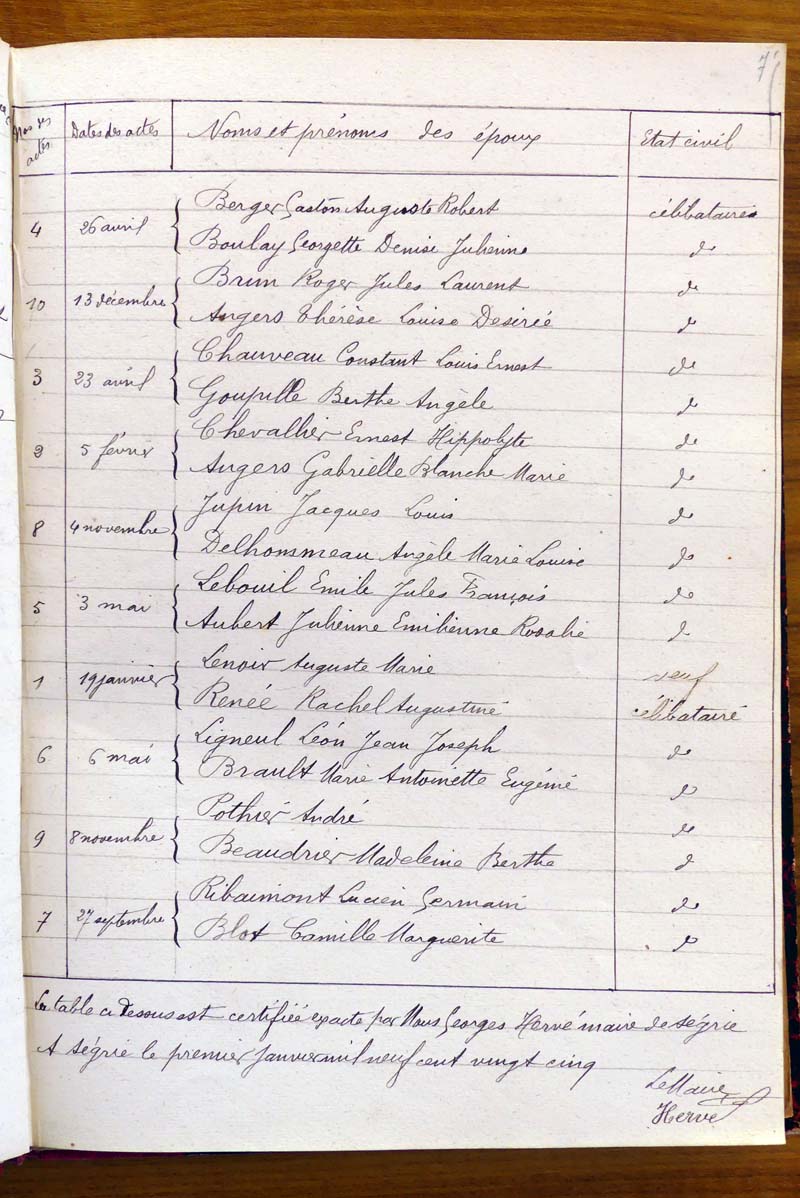 7
Nos des actes Dates des actes Noms et prénoms des époux Etat civil
Berger Gaston Auguste Robert célibataires
4 26 avril
Boulay Georgette Denise Julienne do
Brun Roger Jules Laurent do
10 13 décembre
Angers Thérèse Louise Desirée do
Chauveau Constant Louis Ernest do
3 23 avril
Goupille Berthe Angèle do
Chevallier Ernest Hippolyte do
2 5 février
Angers Gabrielle Blanche Marie do
Jupin Jacques Louis do
8 4 novembre
Delhommeau Angèle Marie Louise do
Lebouil Emile Jules François do
5 3 mai
Aubert Julienne Emilienne Rosalie do
Lenoir Auguste Marie veuf
1 19 janvier
Renée Rachel Augustine célibataire
Ligneul Léon Jean Joseph do
6 6 mai
Brault Marie Antoinette Eugénie do
Pothier André do
9 8 novembre
Beaudrier Madeleine Berthe do
Ribaimont Lucien Germain do
7 27 septembre
Blot Camille Marguerite do
La table ci dessus est certifiée exacte par Nous Georges Hervé maire de Ségrie
A Ségrie le premier Janvier mil neuf cent vingt cinq
Le Maire
Hervé